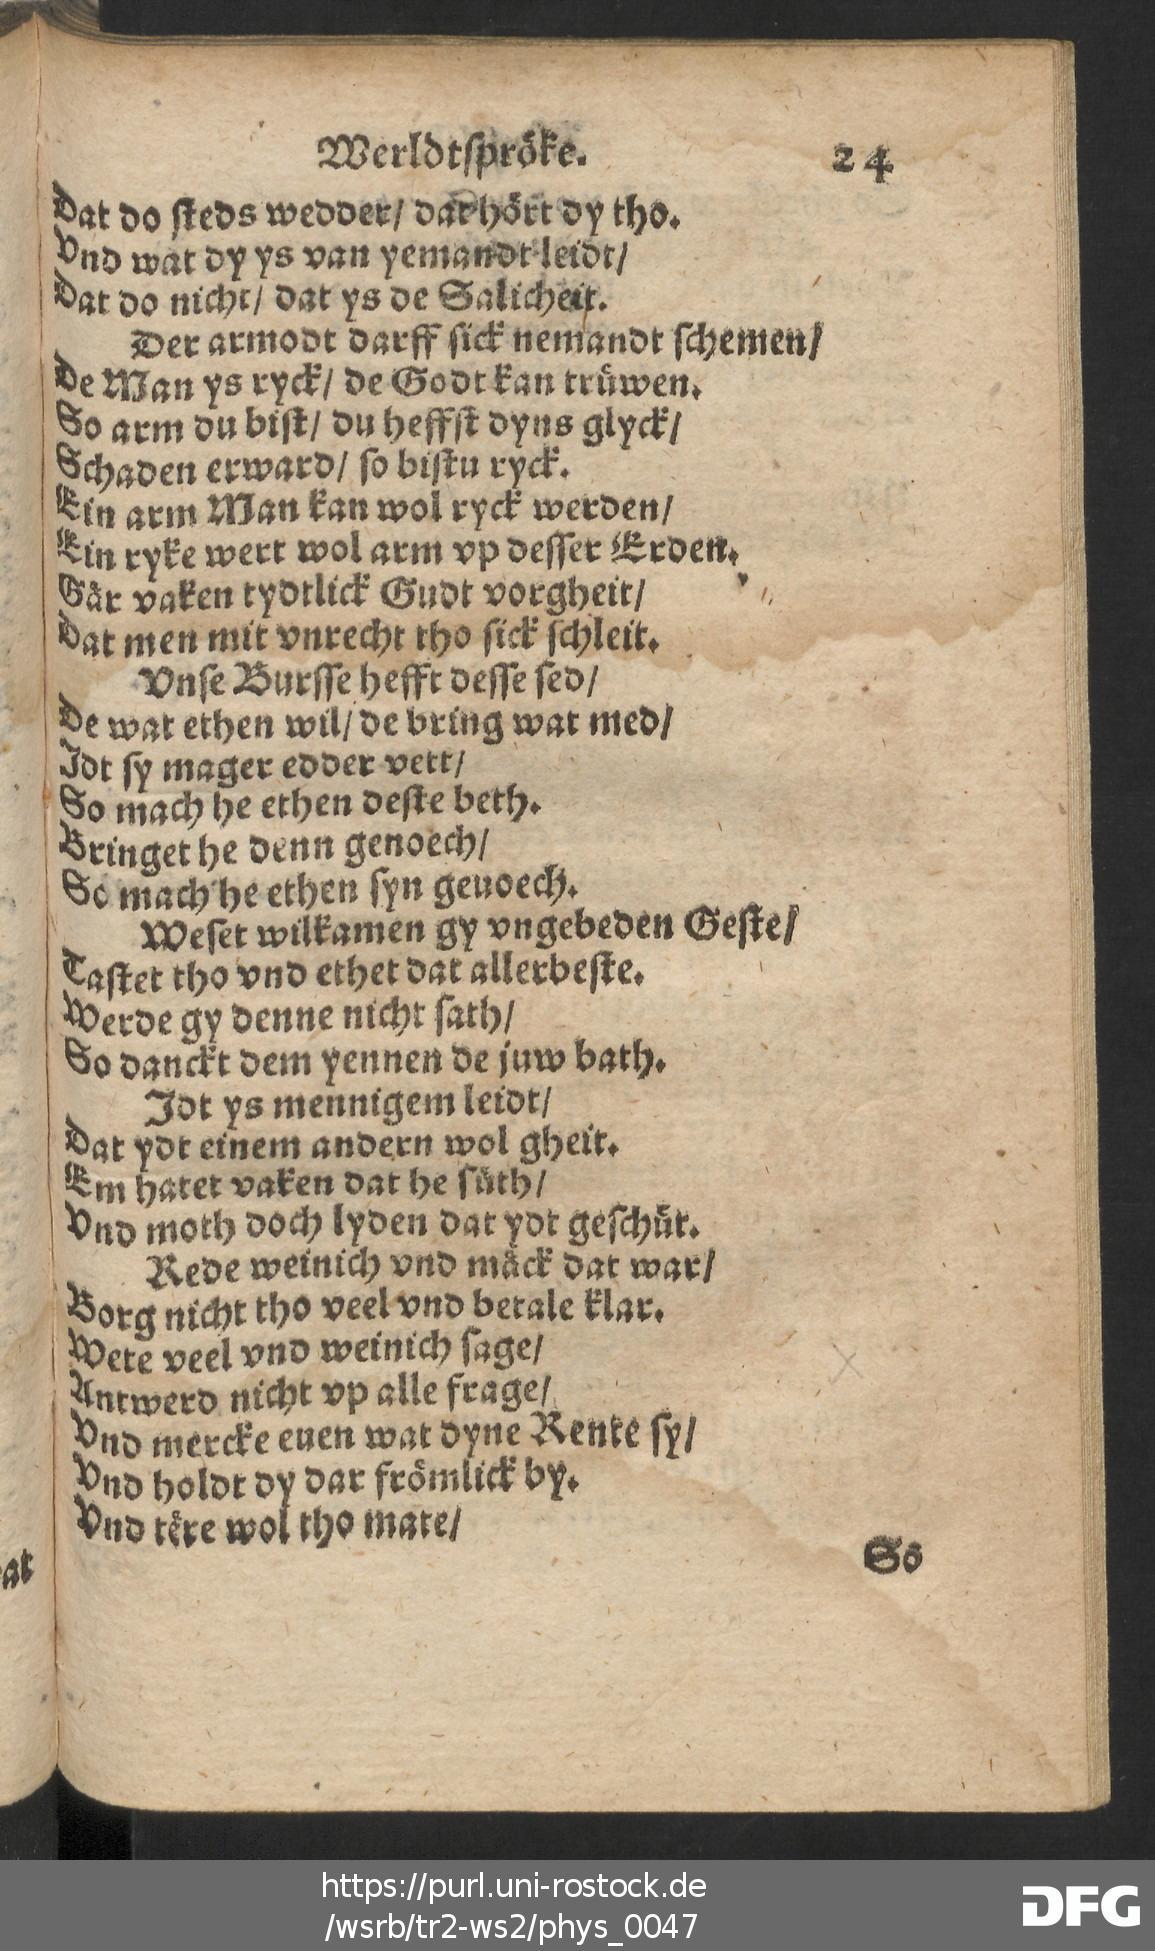 Werldtspröke. 24
Dat do steds wedder/ dat hört dy tho.
Vnd wat dy ys van yemandt leidt/
Dat do nicht/ dat ys de Salicheit.
Der armodt darff sick nemandt schemen/
De Man ys ryck/ de Godt kan trüwen.
So arm du bist/ du heffst dyns glyck/
Schaden erward/ so bistu ryck.
Ein arm Man kan wol ryck werden/
Ein ryke wert wol arm vp desser Erden.
Gär vaken tydtlick Gudt vorgheit/
Dat men mit vnrecht tho sick schleit.
Vnse Bursse hefft desse sed/
De wat ethen wil/ de bring wat med/
Idt sy mager edder vett/
So mach he ethen deste beth.
Bringet he denn genoech/
So mach he ethen syn genoech.
Weset wilkamen gy vngebeden Geste/
Tastet tho vnd ethet dat allerbeste.
Werde gy denne nicht sath/
So danckt dem yennen de juw bath.
Idt ys mennigem leidt/
Dat ydt einem andern wol gheit.
Em hatet vaken dat he süth/
Vnd moth doch lyden dat ydt geschüt.
Rede weinich vnd mäck dat war/
Borg nicht tho veel vnd betale klar.
Wete veel vnd weinich sage/
Antwerd nicht vp alle frage/
Vnd mercke euen wat dyne Rente sy/
Vnd holdt dy dar frömlick by.
Vnd tere wol tho mate/
So
at
https://purl.uni-rostock.de
/wsrb/tr2-ws2/phys_0047
DFG